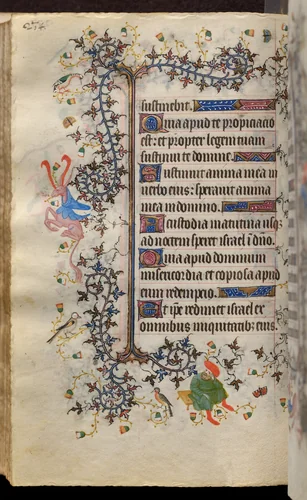 sustinebit.
Quia apud te propiciacio
est: et propter legem tuam
sustinui te domine.
Sustinuit anima mea in
verbo eius: speravit anima
mea in domino.
A custodia matutina usq;
ad noctem speret israel i dno.
Quia apud dominum
misericordia et copiosa apud
eum redempcio.
Et ipe redimet israel ex
omnibus iniquitatib; eius.